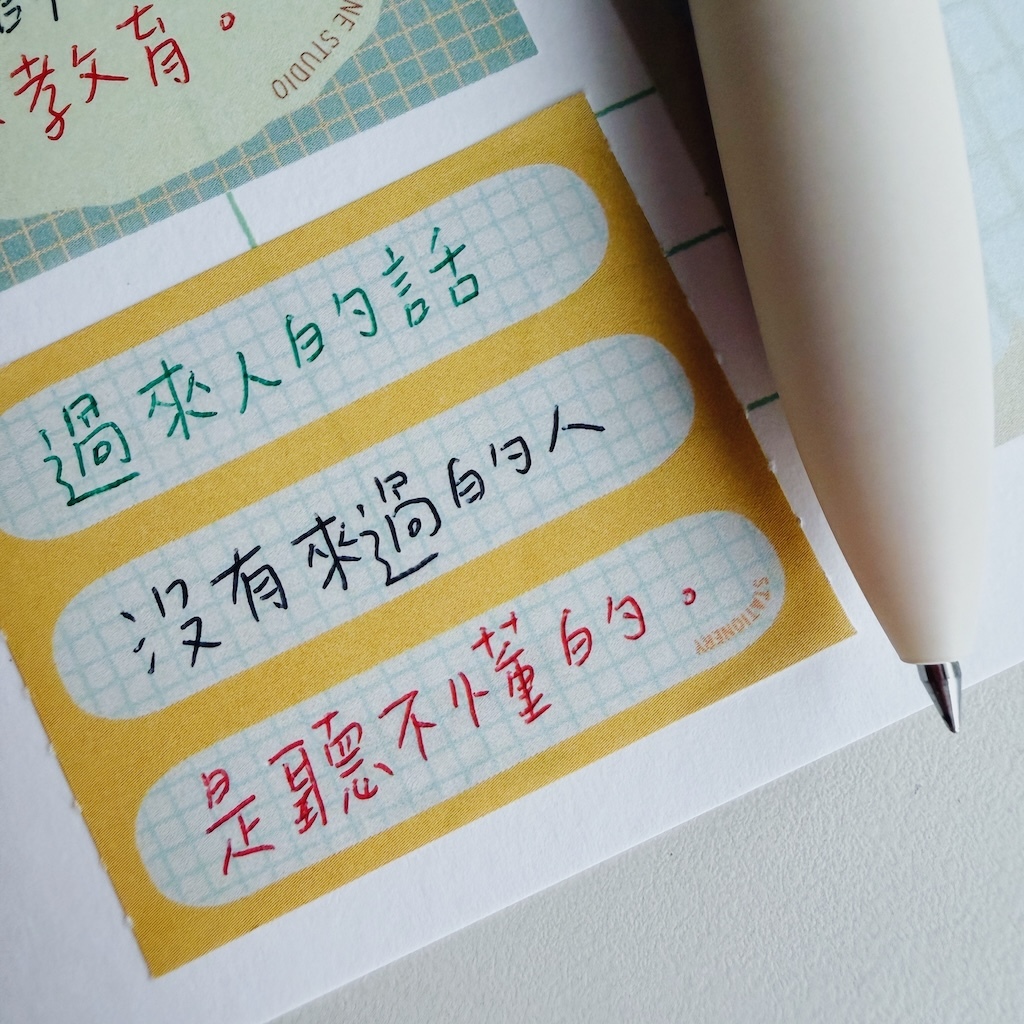 教育。
NE STUDIO
過來人的話
沒有來過的人
是聽不懂的。
STATIONERY